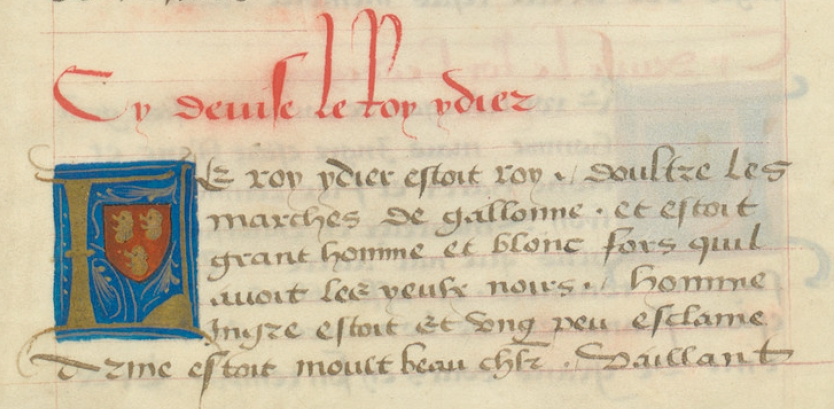 Cy deuise le Roy ydier
LE roy ydier estoit roy . doultre les
marches de gallonne . et estoit
grant homme et blont fors quil
auoit les yeulx noirs . homme
Ingre estoit et vng peu esclame
Arme estoit moult beau chlr . Vaillant